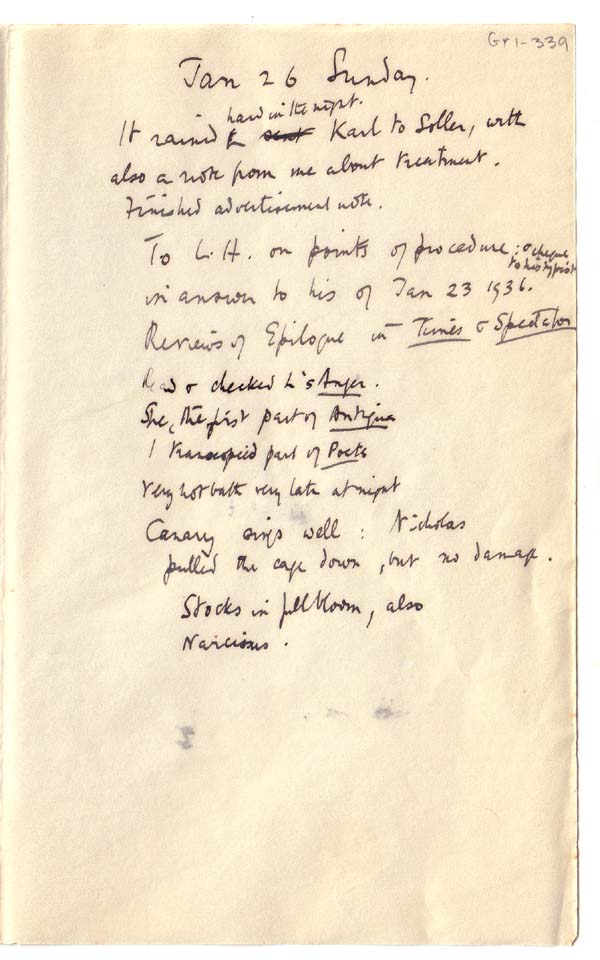 GP1-339
Jan 26 Sunday.
hard in the night.
It rained & sent Karl to Soller, with
also a note from me about treatment.
Finished advertisement note.
To L.H. on points of procedure; & cheque
to his typist
in answer to his of Jan 23 1936.
Reviews of Epilogue in Times & Spectator
Read & checked L's Anger.
She, the first part of Antigua
I transcopied part of Poets
Very hot bath very late at night
Canary sings well: Nicholas
pulled the cage down, but no damage.
Stocks in full bloom, also
Narcissus.